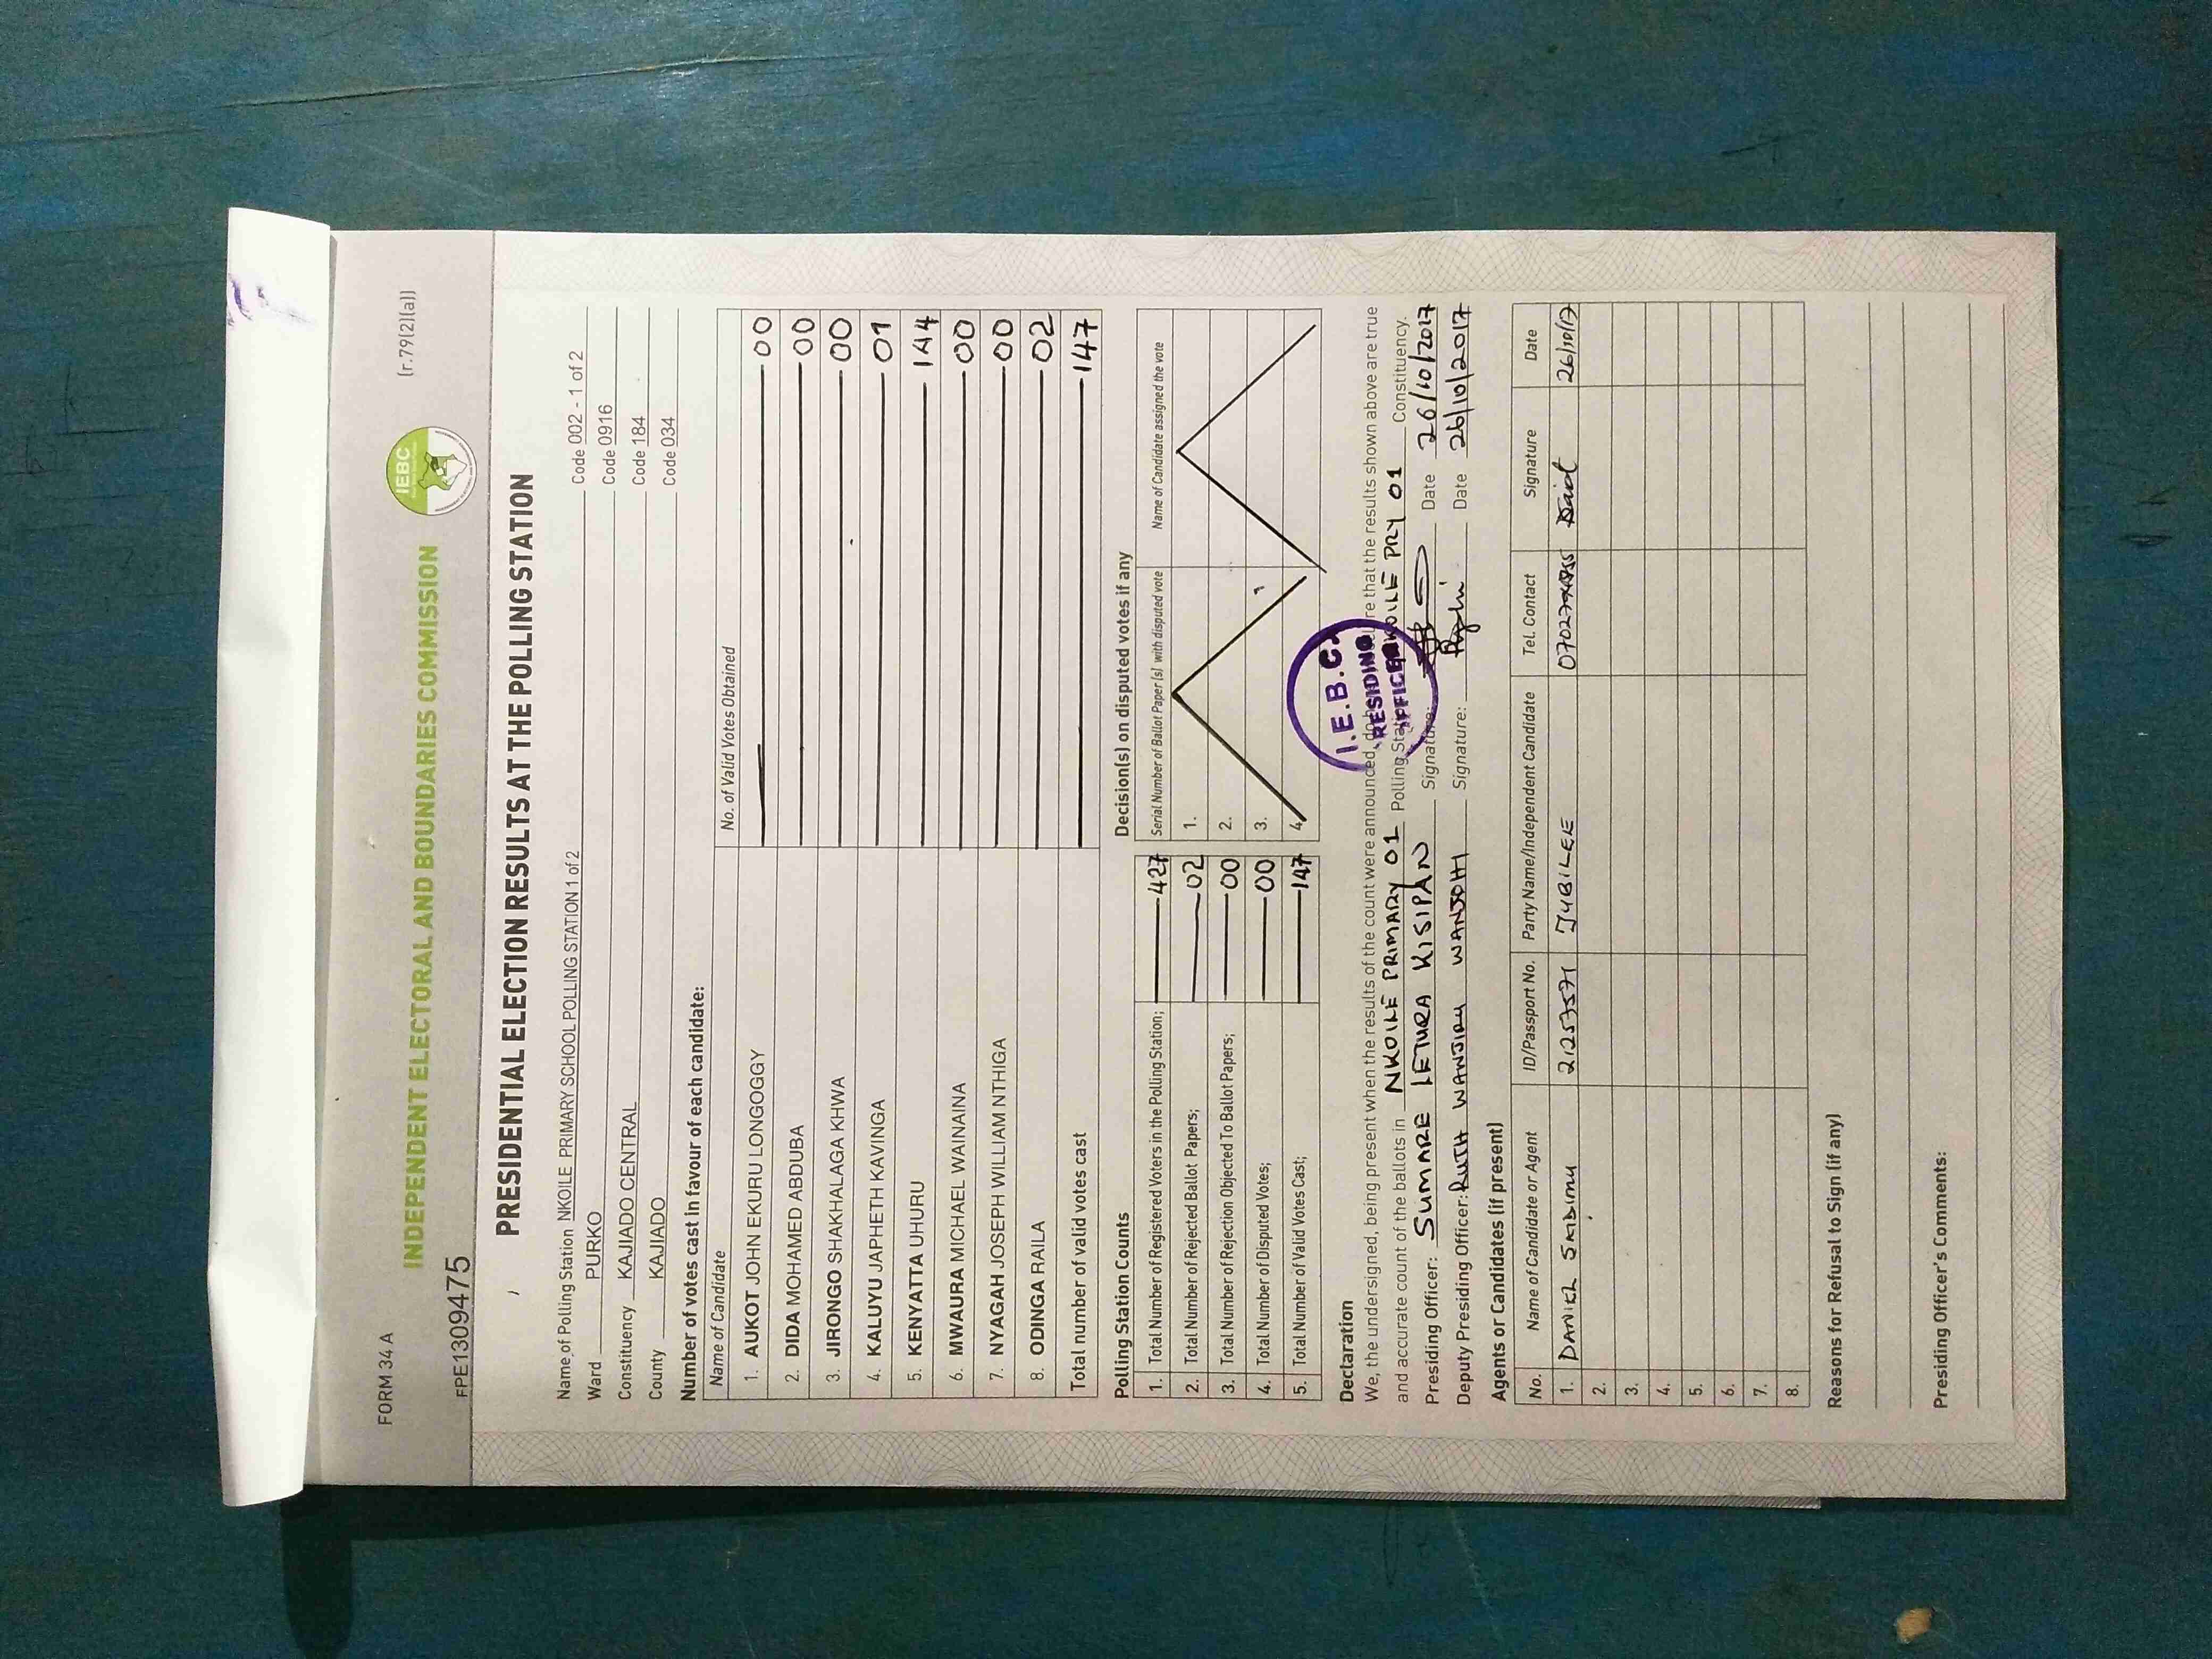 FORM 34 A
(r.79(2)(a))
INDEPENDENT ELECTORAL AND BOUNDARIES COMMISSION
IEBC
FPE1309475
PRESIDENTIAL ELECTION RESULTS AT THE POLLING STATION
Name of Polling Station NKOILE PRIMARY SCHOOL POLLING STATION 1 of 2 Code 002 - 1 of 2
Ward PURKO Code 0916
Constituency KAJIADO CENTRAL Code 184
County KAJIADO Code 034
Number of votes cast in favour of each candidate:
Name of Candidate No. of Valid Votes Obtained
1. AUKOT JOHN EKURU LONGOGGY 00
2. DIDA MOHAMED ABDUBA 00
3. JIRONGO SHAKHALAGA KHWA 00
4. KALUYU JAPHETH KAVINGA 01
5. KENYATTA UHURU 144
6. MWAURA MICHAEL WAINAINA 00
7. NYAGAH JOSEPH WILLIAM NTHIGA 00
8. ODINGA RAILA 02
Total number of valid votes cast 147
Polling Station Counts
1. Total Number of Registered Voters in the Polling Station; 427
2. Total Number of Rejected Ballot Papers; 02
3. Total Number of Rejection Objected To Ballot Papers; 00
4. Total Number of Disputed Votes; 00
5. Total Number of Valid Votes Cast; 147
Decision(s) on disputed votes if any
Serial Number of Ballot Paper (s) with disputed vote Name of Candidate assigned the vote
1.
2.
3.
4.
Declaration
We, the undersigned, being present when the results of the count were announced, do that the results shown above are true
and accurate count of the ballots in NKOILE PRIMARY 01 Polling NKOILE PRY 01 Constituency.
Presiding Officer: SUMARE LETURA KISIPAN Signature: Date 26/10/2017
Deputy Presiding Officer: RUTH WANJIRU WANJOHI Signature: Date 26/10/2017
I.E.B.C.
PRESIDING
OFFICER
Agents or Candidates (if present)
No. Name of Candidate or Agent ID/Passport No. Party Name/Independent Candidate Tel. Contact Signature Date
1. DANIEL 21253571 JUBILEE 26/10/17
2.
3.
4.
5.
6.
7.
8.
Reasons for Refusal to Sign (if any)
Presiding Officer's Comments: